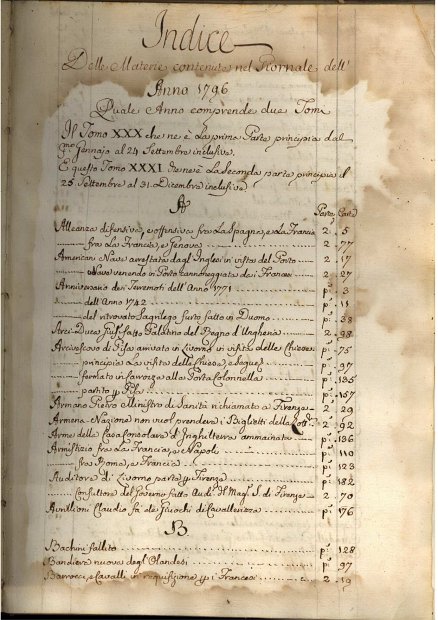 Indice
Delle Materie contenute nel Giornale dell'
Anno 1796
Quale Anno comprende due Tomi
Il Tomo XXX che ne è La prima Parte principia dal
p.mo Gennajo al 24 Settembre inclusive.
E questo Tomo XXXI che ne è La seconda parte principia il
25 Settembre al 31. Dicembre inclusive.
A
Parte Carte
Alleanza difensiva, e offensiva fra La Spagna, e La Francia 2. 5
fra La Francia, e Genova 2. 77
Americani Navi arrestata dagl'Inglesi in vista del Porto 2. 17
Nave venendo in Porto cannoneggiata dai Francesi 2. 27
Anniversario dei Terremoti dell'Anno 1771 p.a 3
dell'Anno 1742 p.a 11
del ritrovato Sagrilego furto fatto in Duomo p.a 38
Arci-Duca fatto Palatino del Regno d'Ungheria 2. 98
Arcivescovo di Pisa arrivato in Livorno in visita delle Chiese p.a 75
principia La visita delle Chiese, e segue p.a 97
fermato in carrozza alla Porta Colonnella p.a 135
partito p Pisa p.a 157
Armano Pietro Ministro di Sanità richiamato a Firenze 2. 29
Armena Nazione non vuol prendere i Biglietti della Lott.a 2. 92
Arme della Casa Consolare d'Inghilterra ammainata p.a 136
Armistizio fra La Francia, e Napoli p.a 110
fra Roma, e Francia p.a 123
Auditore di Livorno parte p Firenze p.a 182
Consultore del Governo fatto Aud.e Il Mag.o S. di Firenze 2. 70
Avrillon Claudio fa dei Giuochi di Cavallerizza p.a 176
B
Bachini fallito p.a 128
Bandiera nuova degl'Olandesi p.a 97
Barrocci, e Cavalli in requisizione p i Francesi 2. 19